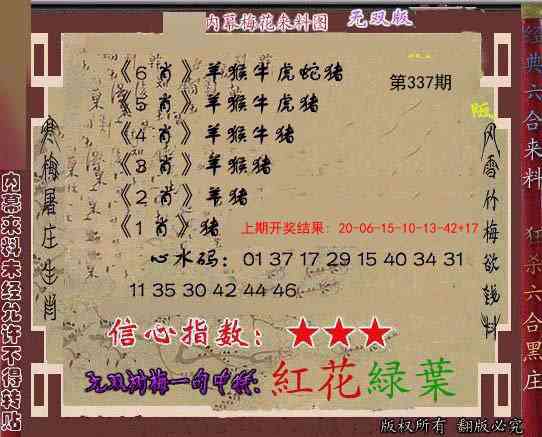 内幕梅花来料图 无双版
《6肖》羊猴牛虎蛇猪
第337期
《5肖》羊猴牛虎猪
《4肖》羊猴牛猪
《3肖》羊猴猪
《2肖》羊猪
《1肖》猪
上期开奖结果：20-06-15-10-13-42+17
心水码：01 37 17 29 15 40 34 31
11 35 30 42 44 46
信心指数：★★★
紅花緑葉
版权所有 翻版必究
寒梅屠庄生肖
风雪竹梅欲钱料
内幕来料未经允许不得转贴
经典六合来料 狂杀六合黑庄